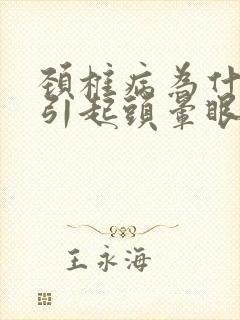 頚椎病為什
引起頭暈眼
王永海